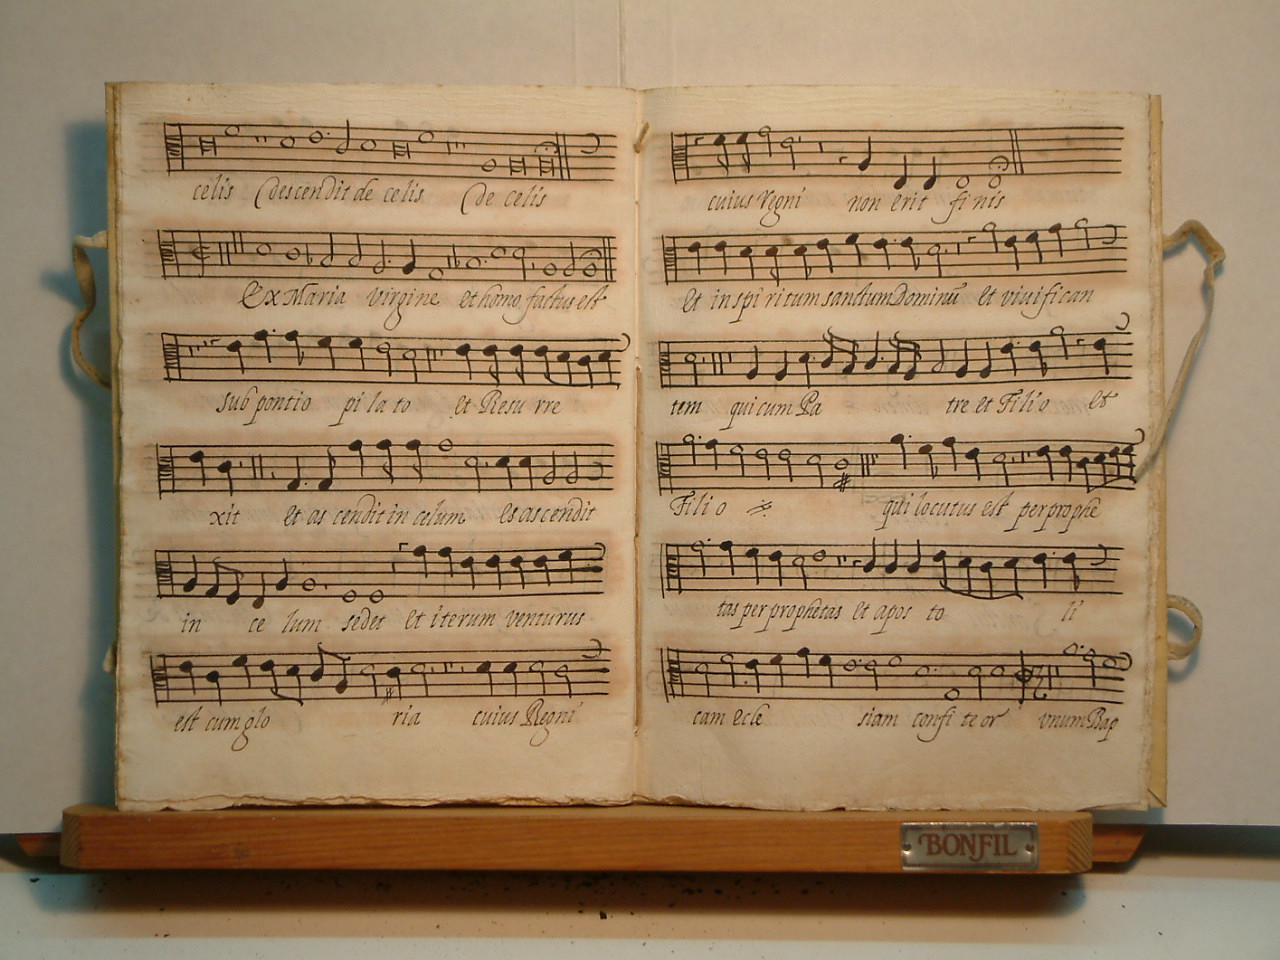 celis descendit de celis de celis
Ex Maria virgine et homo factus est
sub pontio pi la to et Resu rre
xit et as cendit in celum et ascendit
in ce lum sedet et iterum venturus
est cum glo ria cuius Regni
cuius regni non erit finis
Et in spi ritum sanctum Dominũ et vivifican
tem qui cum Pa tre et Filio et
Filio qui locutus est per prophe
tas per prophetas et apos to li
cam ecle siam confi te or vnum Bap
BONFIL